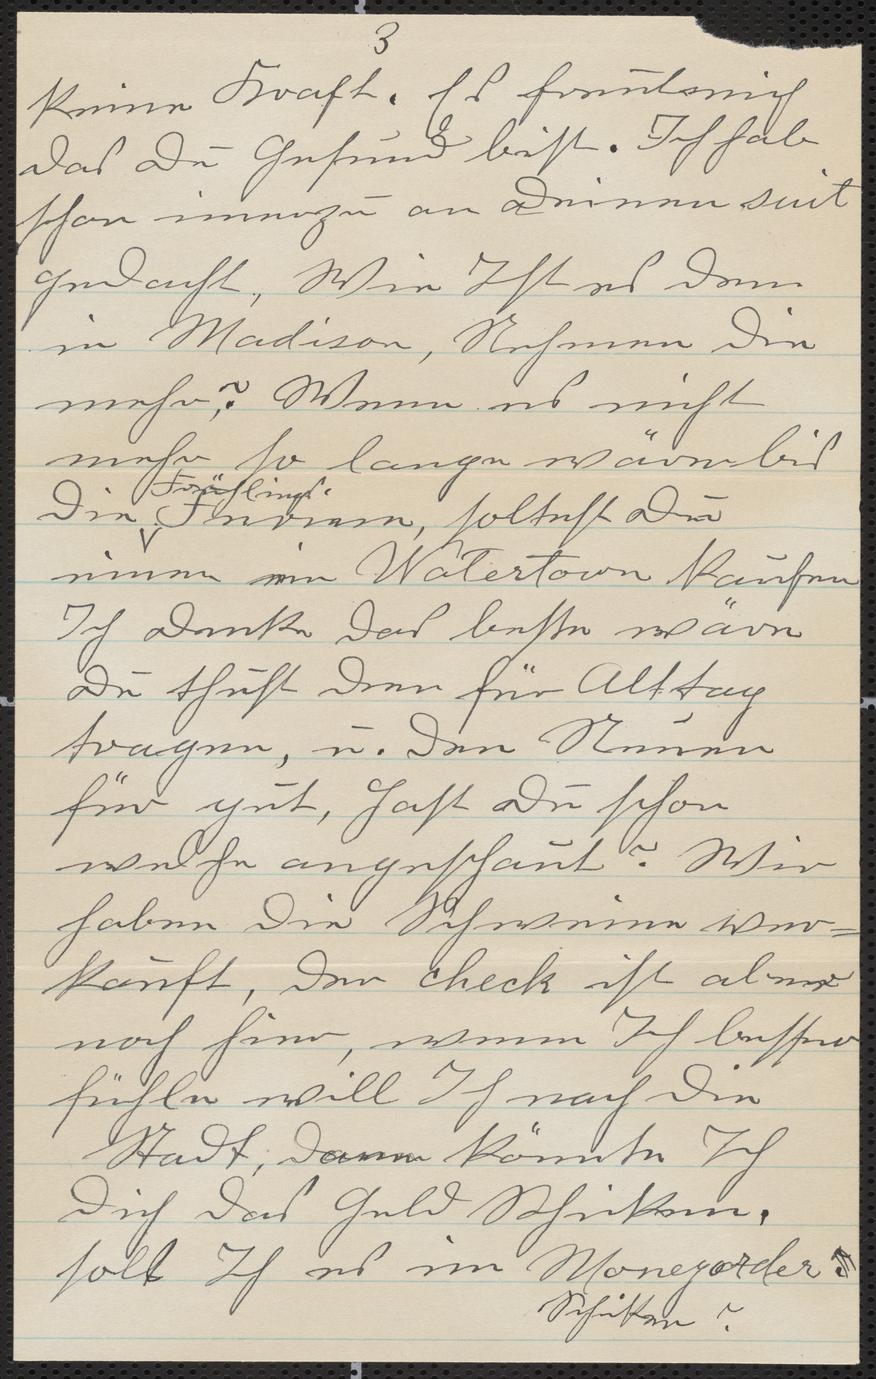 3
keine Kraft. Es freut mich
das Du Gesund bist. Ich hab
schon immerzu an Deinen suit
gedacht, Wie Ist es denn
in Madison, Nehmen die
mehr? Wenn es nicht
mehr so lange wäre bis
die Frühlings.
Ferien, soltest Du
einen in Watertown kaufen
Ich denke das beste wäre
Du thust den für Alttag
tragen, u. den Neuen
für gut, Hast Du schon
welche angeschaut? Wir
haben die Schweine ver=
kauft, der check ist aber
noch hier, wenn Ich besser
fühle will Ich nach die
Stadt, dann könnte Ich
Dich das Geld Schicken.
soll Ich es im Moneyorder
Schiken?